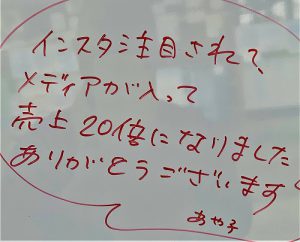 インスタ注目されて、
メディアが入って
売上20倍になりました
ありがとうございます
あや子